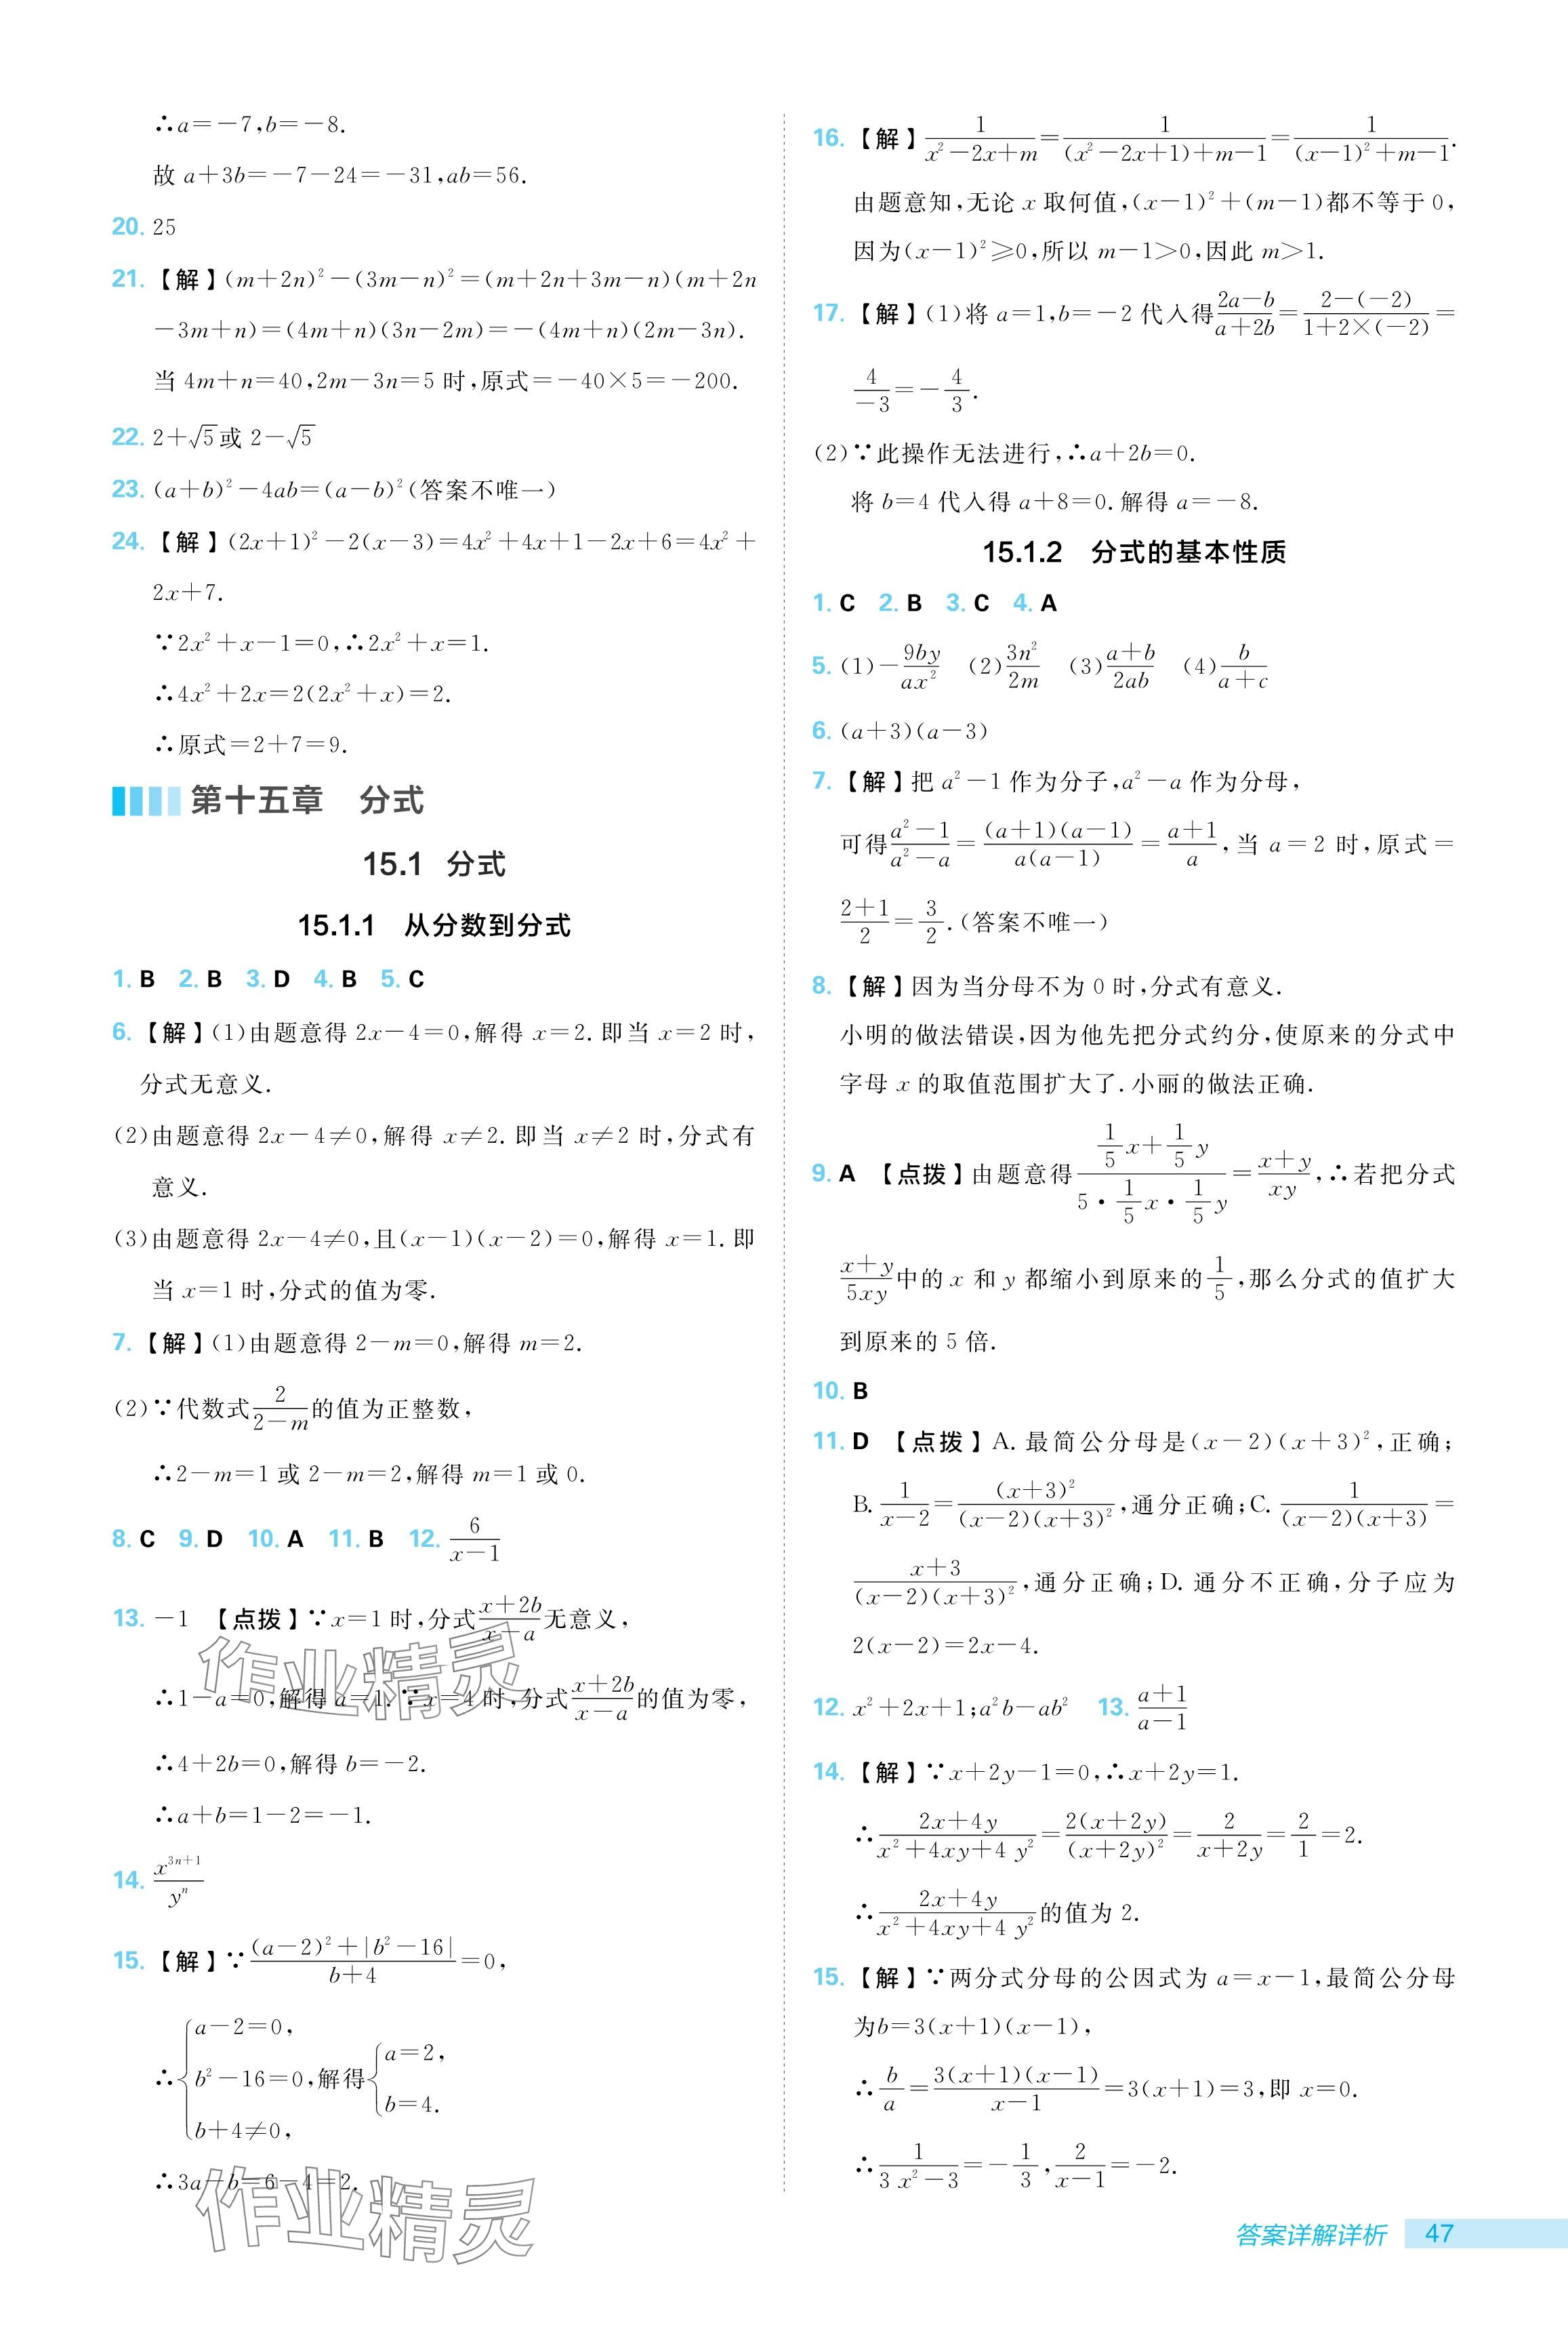 ∴a=-7,b=-8.
故 a+3b=-7-24=-31,ab=56.
20. 25
21.【解】(m+2n)²-(3m-n)²=(m+2n+3m-n)(m+2n
-3m+n)=(4m+n)(3n-2m)=-(4m+n)(2m-3n).
当 4m+n=40,2m-3n=5 时,原式=-40×5=-200.
22. 2+√5或 2-√5
23. (a+b)²-4ab=(a-b)²(答案不唯一)
24.【解】(2x+1)²-2(x-3)=4x²+4x+1-2x+6=4x²+
2x+7.
∵2x²+x-1=0,∴2x²+x=1.
∴4x²+2x=2(2x²+x)=2.
∴原式=2+7=9.
第十五章 分式
15.1 分式
15.1.1 从分数到分式
1. B 2. B 3. D 4. B 5. C
6.【解】(1)由题意得 2x-4=0,解得 x=2. 即当 x=2 时,
分式无意义.
(2)由题意得 2x-4≠0,解得 x≠2. 即当 x≠2 时,分式有
意义.
(3)由题意得 2x-4≠0,且(x-1)(x-2)=0,解得 x=1. 即
当 x=1 时,分式的值为零.
7.【解】(1)由题意得 2-m=0,解得 m=2.
(2)∵代数式2/(2-m)的值为正整数,
∴2-m=1 或 2-m=2,解得 m=1 或 0.
8. C 9. D 10. A 11. B 12. 6/(x-1)
13. -1 【点拨】∵x=1 时,分式(x+2b)/(x-a)无意义,
∴1-a=0,解得 a=1. ∵x=4 时,分式(x+2b)/(x-a)的值为零,
∴4+2b=0,解得 b=-2.
∴a+b=1-2=-1.
14. x³ⁿ⁺¹/yⁿ
15.【解】∵((a-2)²+|b²-16|)/(b+4)=0,
∴{a-2=0,
b²-16=0,解得{a=2,
b=4.
b+4≠0,
∴3a-b=6-4=2.
16.【解】1/(x²-2x+m)=1/((x²-2x+1)+m-1)=1/((x-1)²+m-1).
由题意知,无论 x 取何值,(x-1)²+(m-1)都不等于 0,
因为(x-1)²≥0,所以 m-1>0,因此 m>1.
17.【解】(1)将 a=1,b=-2 代入得(2a-b)/(a+2b)=(2-(-2))/(1+2×(-2))=
4/(-3)=-4/3.
(2)∵此操作无法进行,∴a+2b=0.
将 b=4 代入得 a+8=0. 解得 a=-8.
15.1.2 分式的基本性质
1. C 2. B 3. C 4. A
5. (1)-9by/ax² (2)3n²/2m (3)(a+b)/2ab (4)b/(a+c)
6. (a+3)(a-3)
7.【解】把 a²-1 作为分子,a²-a 作为分母,
可得(a²-1)/(a²-a)=(a+1)(a-1)/a(a-1)=(a+1)/a,当 a=2 时,原式=
(2+1)/2=3/2.(答案不唯一)
8.【解】因为当分母不为 0 时,分式有意义.
小明的做法错误,因为他先把分式约分,使原来的分式中
字母 x 的取值范围扩大了. 小丽的做法正确.
9. A 【点拨】由题意得(1/5x+1/5y)/(5·1/5x·1/5y)=(x+y)/xy,∴若把分式
(x+y)/5xy中的 x 和 y 都缩小到原来的1/5,那么分式的值扩大
到原来的 5 倍.
10. B
11. D 【点拨】A. 最简公分母是(x-2)(x+3)²,正确;
B. 1/(x-2)=(x+3)²/((x-2)(x+3)²),通分正确;C. 1/((x-2)(x+3))=
(x+3)/((x-2)(x+3)²),通分正确;D. 通分不正确,分子应为
2(x-2)=2x-4.
12. x²+2x+1;a²b-ab² 13. (a+1)/(a-1)
14.【解】∵x+2y-1=0,∴x+2y=1.
∴(2x+4y)/(x²+4xy+4 y²)=2(x+2y)/(x+2y)²=2/(x+2y)=2/1=2.
∴(2x+4y)/(x²+4xy+4 y²)的值为 2.
15.【解】∵两分式分母的公因式为 a=x-1,最简公分母
为b=3(x+1)(x-1),
∴b/a=3(x+1)(x-1)/(x-1)=3(x+1)=3,即 x=0.
∴1/(3 x²-3)=-1/3,2/(x-1)=-2.
作业精灵
作业精灵
答案详解详析 47